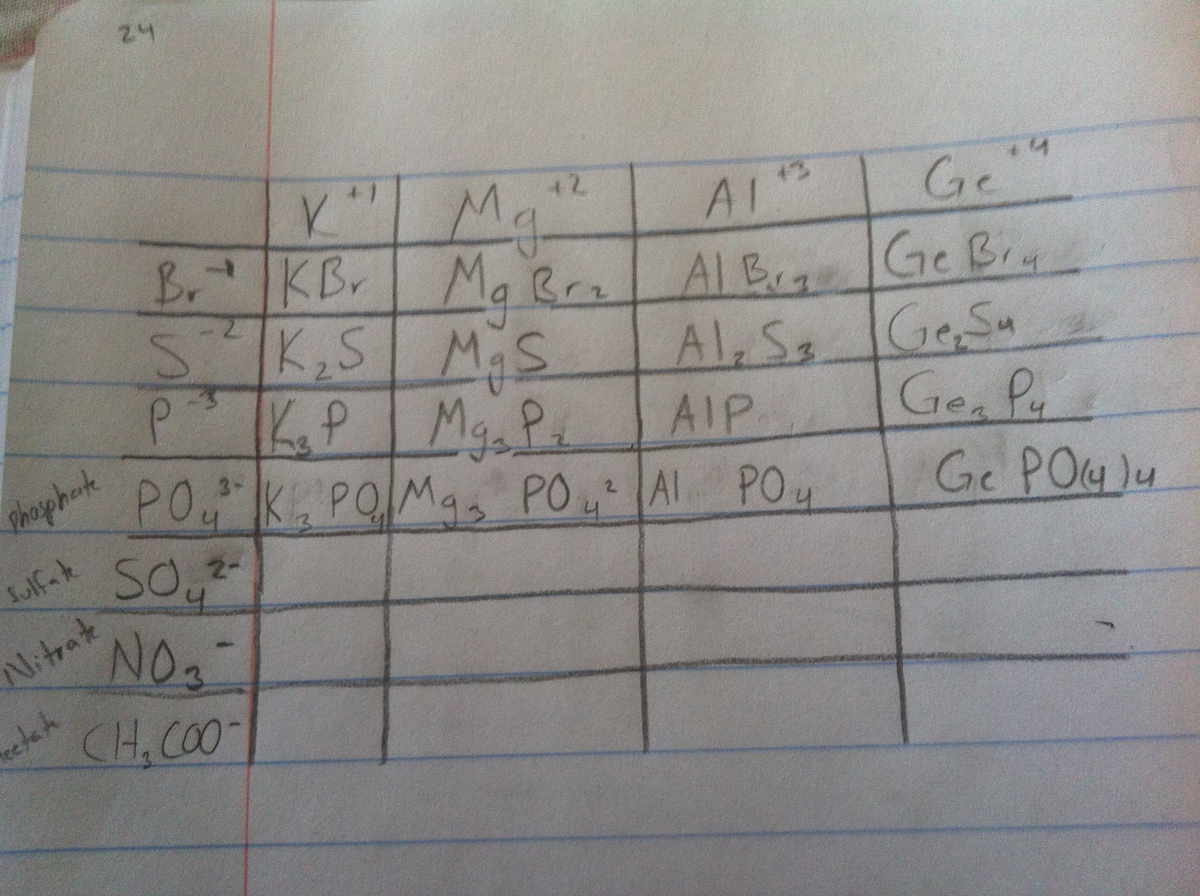 24
K +1 Mg +2 Al +3 Ge +4
Br -1 KBr MgBr2 AlBr3 GeBr4
S -2 K2S MgS Al2S3 Ge2S4
P -3 K3P Mg3P2 AlP Ge3P4
phosphate PO4 3- K3 PO4 Mg3 PO4 2 Al PO4 Ge PO(4)4
sulfate SO4 2-
Nitrate NO3 -
CH3COO-